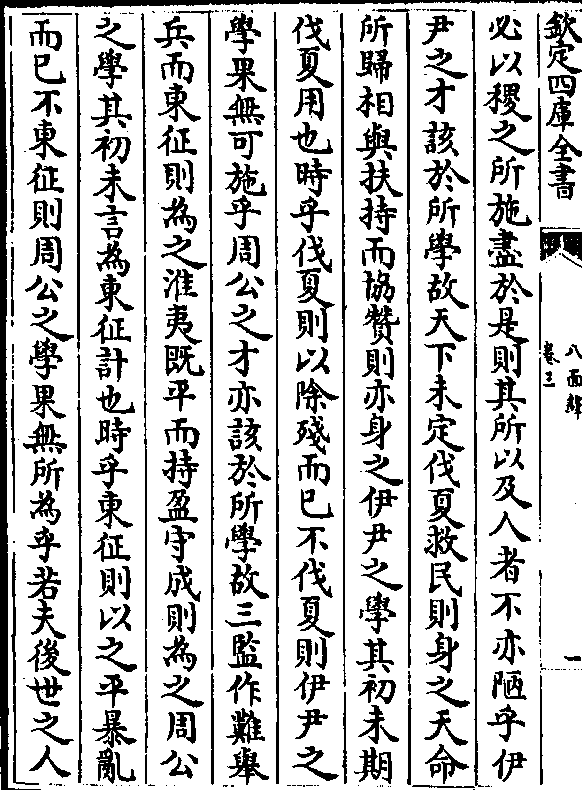 欽定四庫全書
八面鋒
卷三
一
必以稷之所施盡於是則其所以及人者不亦陋乎伊
尹之才該於所學故天下未定伐夏救民則身之天命
所歸相與扶持而協贊則亦身之伊尹之學其初未期
伐夏用也時乎伐夏則以除殘而已不伐夏則伊尹之
學果無可施乎周公之才亦該於所學故三監作難舉
兵而東征則為之淮夷既平而持盈守成則為之周公
之學其初未言為東征計也時乎東征則以之平暴亂
而已不東征則周公之學果無所為乎若夫後世之人